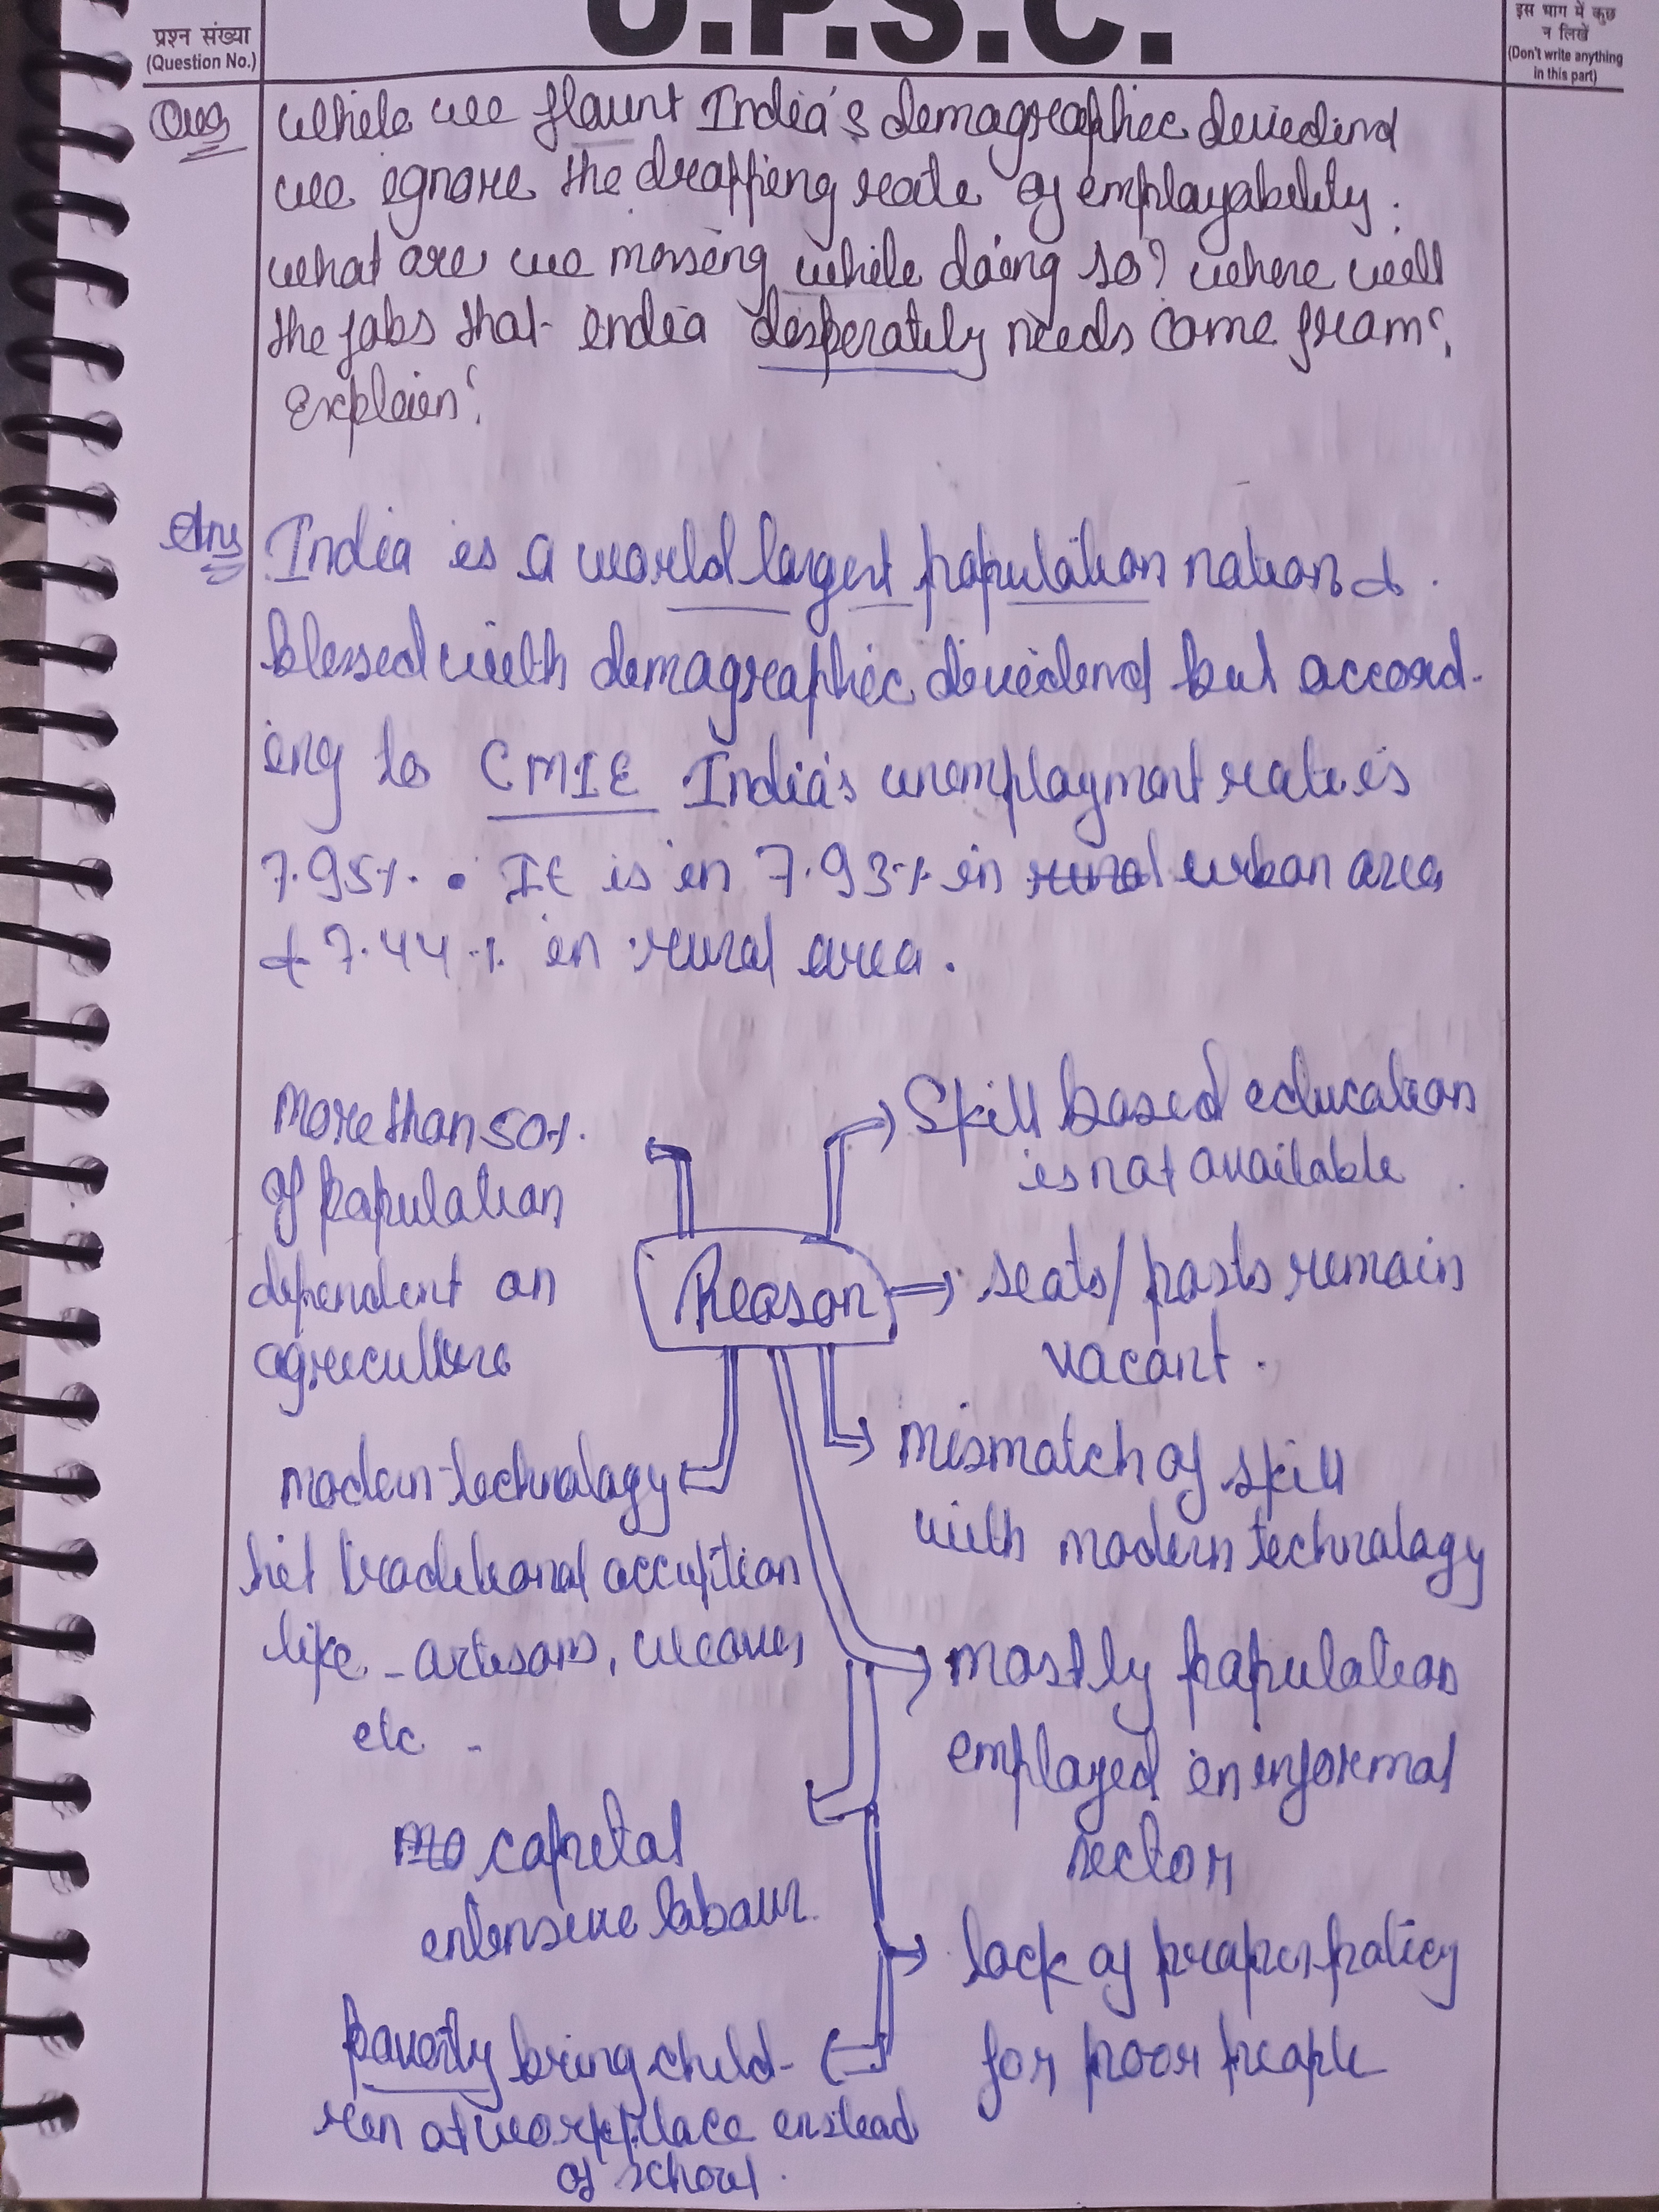 प्रश्न संख्या
(Question No.)
U.P.S.C.
इस भाग में कुछ
न लिखें
(Don't write anything
in this part)
Ques
while we flaunt India's demographic dividend
we ignore the dropping rate of employability.
what are we missing while doing so? where will
the jobs that india desperately needs come from?
Explain?
Ans
India is a world largest population nation &
blessed with demographic dividend but accord-
ing to CMIE India's unemployment rate is
7.95%. It is in 7.93% in rural urban area
& 7.44% in rural area.
More than 50%
of population
dependent on
agriculture
Skill based education
is not available
Reason
seats/posts remain
vacant.
modern technology
hit traditional occuption
like - artisans, weaves
etc -
mismatch of skill
with modern technology
mostly population
employed in informal
sector
no capital
intensive labour.
lack of proper policy
for poor people
poverty bring child-
ren at workplace instead
of school.